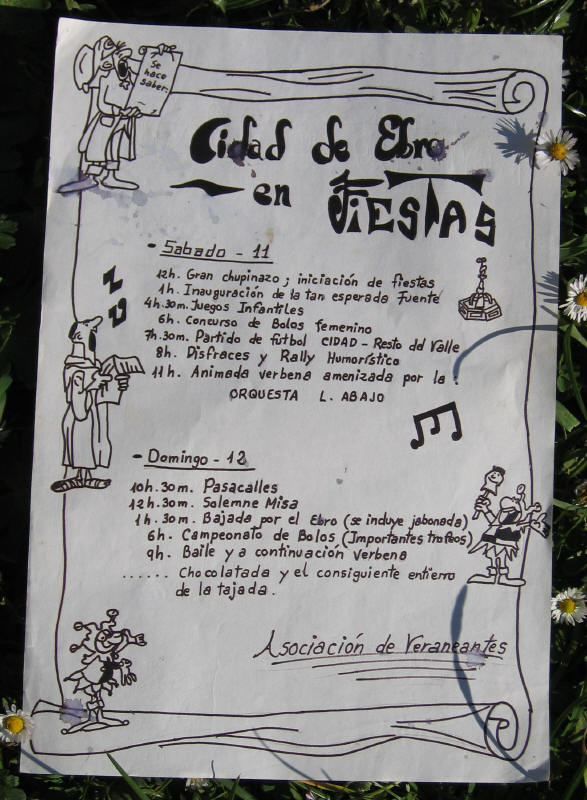 Se
hace
saber:
Cidad de Ebro
en FiESTAS
- Sabado - 11
12h. Gran chupinazo; iniciación de fiestas
1h. Inauguración de la tan esperada Fuente
4h.30m. Juegos Infantiles
6h. Concurso de Bolos femenino
7h.30m. Partido de futbol CIDAD - Resto del Valle
8h. Disfraces y Rally Humorístico
11h. Animada verbena amenizada por la :
ORQUESTA L. ABAJO
- Domingo - 12
10h.30m. Pasacalles
12h.30m. Solemne Misa
1h.30m. Bajada por el Ebro (se incluye jabonada)
6h. Campeonato de Bolos (Importantes trofeos)
9h. Baile y a continuación verbena
...... Chocolatada y el consiguiente entierro
de la tajada.
Asociación de Veraneantes